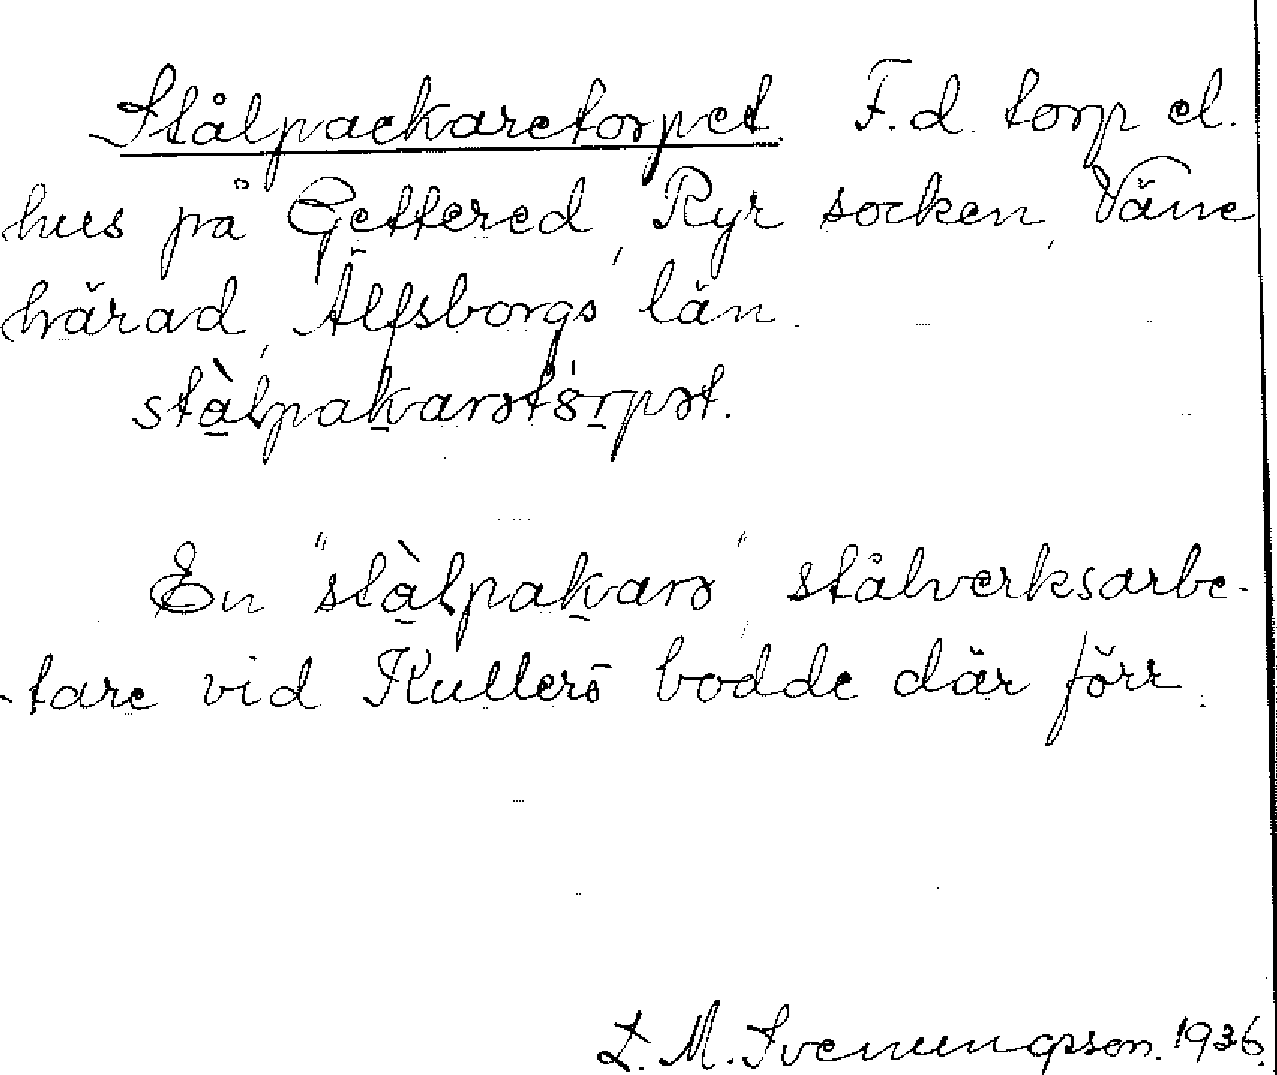 Stålpackaretorpet. F.d. torp el.
hus på Gettered, Ryr socken, Väne
härad, Älfsborgs län.
stålpakarətörpət.
En "stålpakarə", stålverksarbe-
-tare vid Kullerö bodde där förr.
L. M. Svenungsson. 1936.